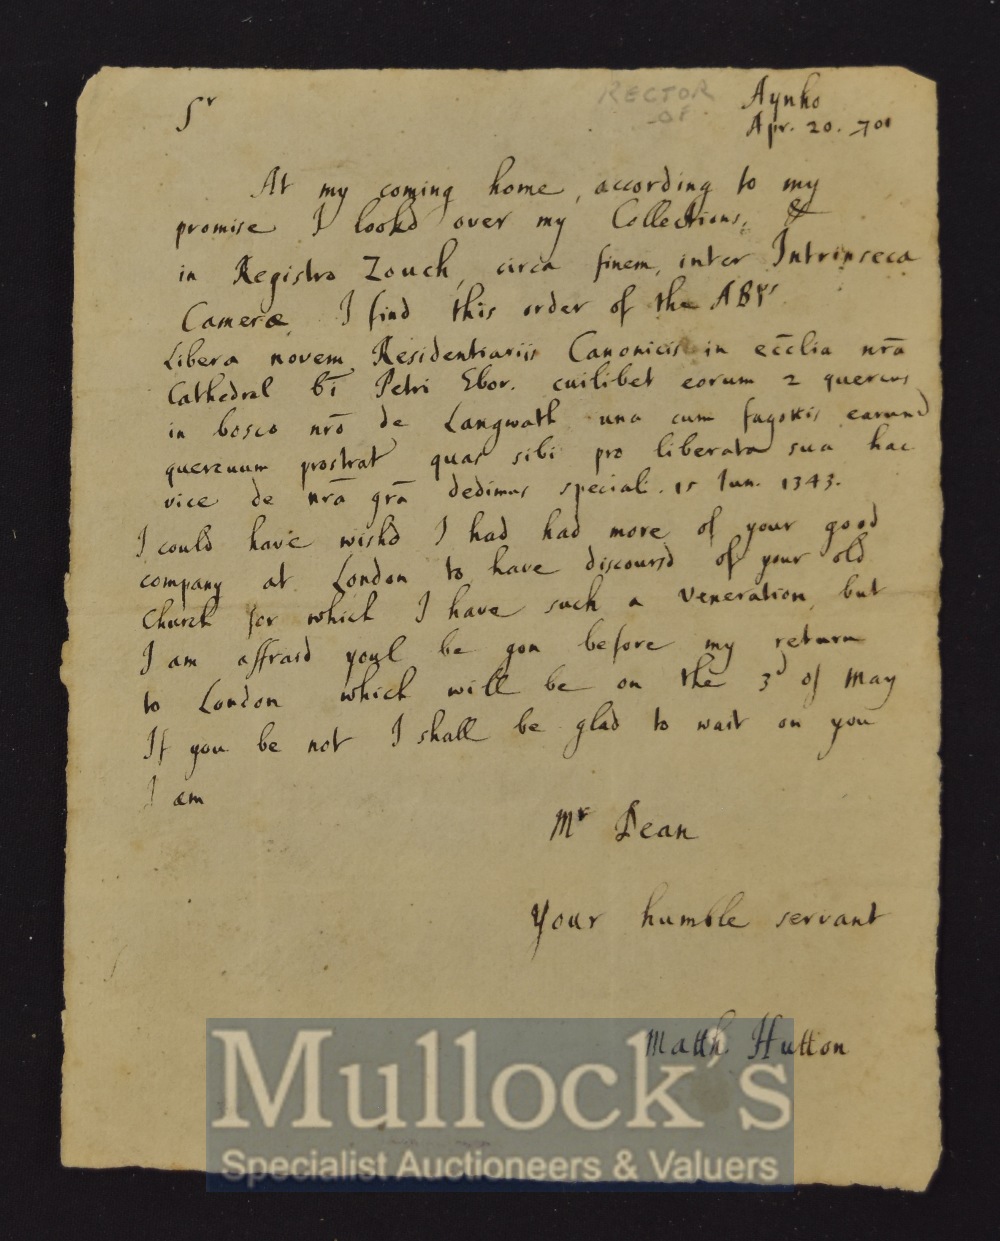 RECTOR
OF
Aynho
Apr. 20. 701
Sr
At my coming home, according to my
promise I lookd over my Collections, &
in Registro Zouch, circa finem, inter Intrinseca
Cameræ, I find this order of the ABps
Libera novem Residentiariis Canonicis in ecclia nrā
Cathedral bī Petri Ebor. cuilibet eorum 2 quercus
in bosco nrō de Langwath una cum fagottis earund
quercuum prostrat quas sibi pro liberata sua hac
vice de nrā grā dedimus speciali. 15 Jun. 1343.
I could have wishd I had had more of your good
company at London to have discoursd of your old
Church for which I have such a veneration, but
I am affraid youl be gon before my return
to London which will be on the 3d of May
If you be not I shall be glad to wait on you
I am
Mr Dean
Your humble servant
Matth Hutton
Mullock's
Specialist Auctioneers & Valuers